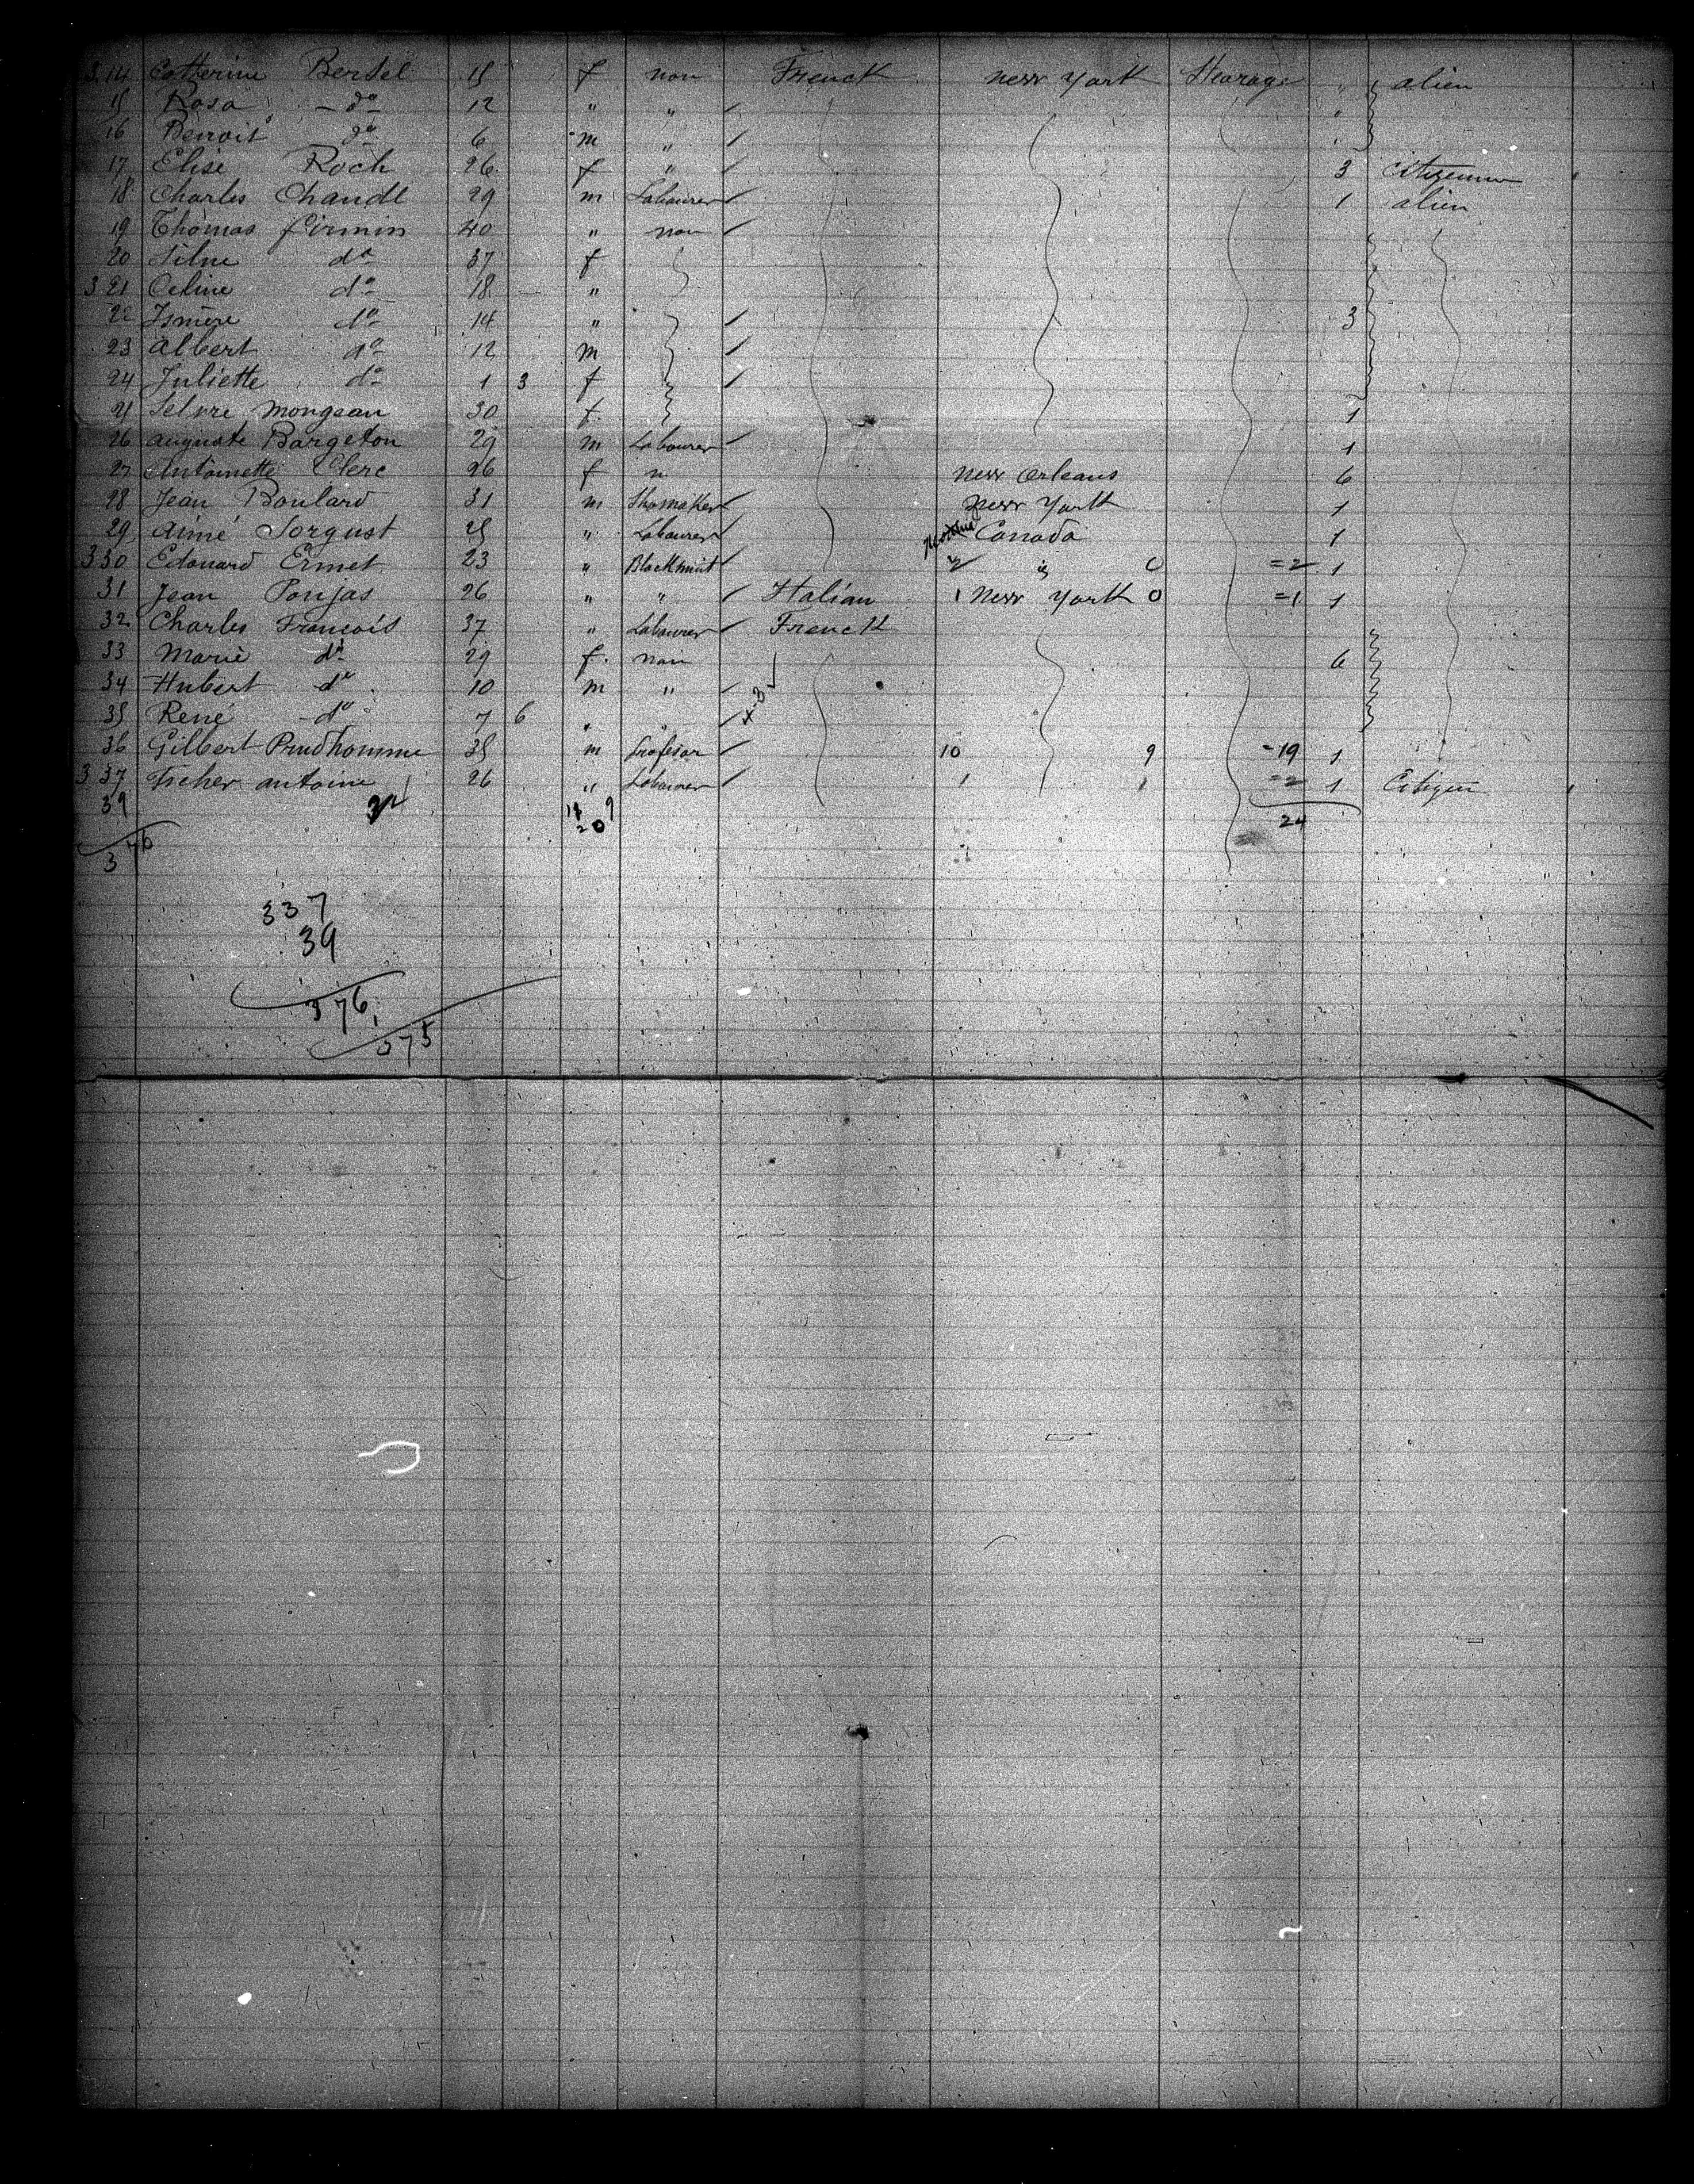 314 Catherine Bersel 15 f non French new York Stearage " alien
15 Rosa - do 12 " " "
16 Benoist do 6 m "
17 Elise Roch 26 f " 3 Citizenne
18 Charles Chandl 29 m Labourer 1 alien
19 Thomas firmin 40 " non
20 Silne do 37 f
321 Celine do 18 "
22 Ismere do 14 " 3
23 Albert do 12 m
24 Juliette do 1 3 f
25 Mongeau 30 f. 1
26 Auguste Bargeton 29 m Labourer 1
27 Antoinette Clerc 26 f n new Orleans 6
28 Jean Boulard 31 m Shomaker new York 1
29 Aimé Sorgust 25 " Labourer Canada 1
330 Edouard Ermet 23 " Blacksmit 2 " 0 =2 1
31 Jean Poujas 26 " " Italian 1 new York 0 =1 1
32 Charles François 37 " Labourer French
33 Marie do 29 f. non 6
34 Hubert do 10 m "
35 René do 7 6 " "
36 Gilbert Prudhomme 35 m Profesor 10 9 =19 1
337 Ficher antoine 26 " Labourer 1 1 =2 1 Citizen
39 24
376
337
39
376
1
375